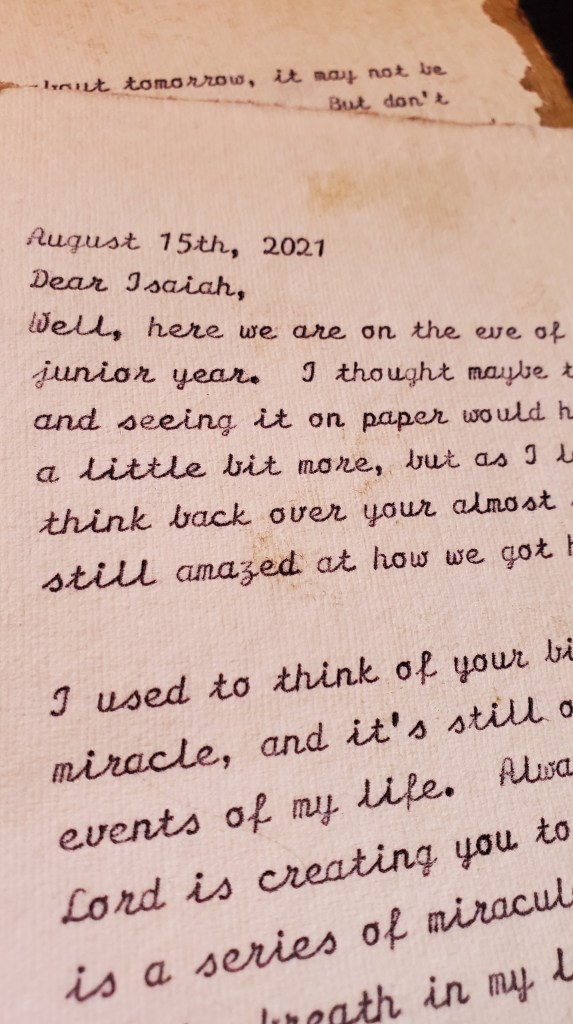 tomorrow, it may not be
But don't
August 15th, 2021
Dear Isaiah,
Well, here we are on the eve of
junior year. I thought maybe
and seeing it on paper would
a little bit more, but as I
think back over your almost
still amazed at how we got
I used to think of your
miracle, and it's still
events of my life.
Lord is creating you to
is a series of
breath in my